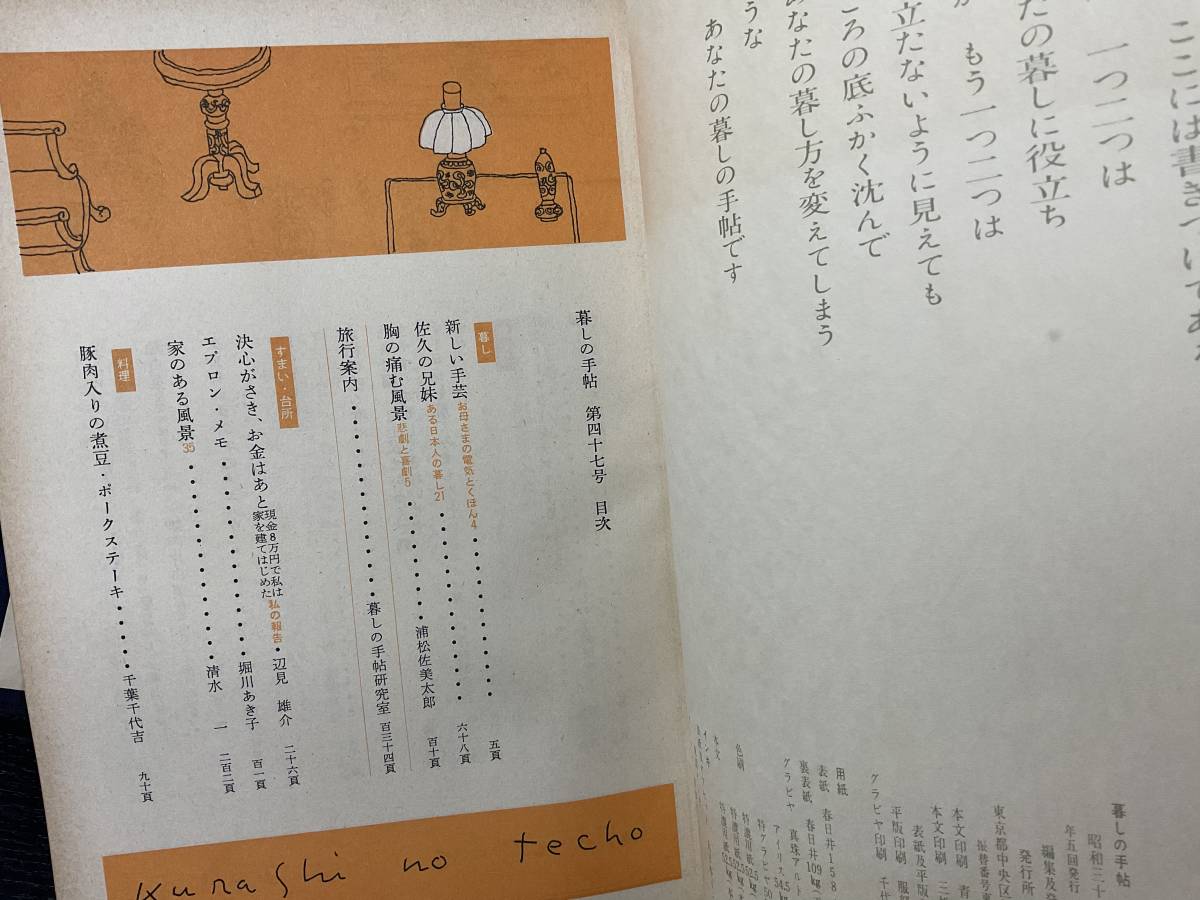 ここには書きつけてあ
一つ二つは
たの暮しに役立ち
もう一つ二つは
立たないように見えても
ころの底ふかく沈んで
あなたの暮し方を変えてしまう
うな
あなたの暮しの手帖です
暮しの手帖
昭和三十
年五回発行
編集及発
発行所
東京都中央区
振替番号
本文印刷 青
本文印刷 三
表紙及平版
平版印刷 服部
グラビヤ印刷 千代
用紙
表紙 春日井158
裏表紙 春日井109kg
グラビヤ 真珠アルト
アイリス54.5
特グラビヤ50
色刷
本文
インキ
暮しの手帖 第四十七号 目次
暮し
新しい手芸 お母さまの電気とくほん4 五頁
佐久の兄妹 ある日本人の暮し21 六十八頁
胸の痛む風景 悲劇と喜劇5 浦松佐美太郎 百十頁
旅行案内 暮しの手帖研究室 百三十四頁
すまい・台所
決心がさき、お金はあと 現金8万円で私は家を建てはじめた 私の報告 辺見 雄介 二十六頁
エプロン・メモ 堀川あき子 百一頁
家のある風景35 清水 一 二百二頁
料理
豚肉入りの煮豆・ポークステーキ 千葉千代吉 九十頁
kurashi no techo